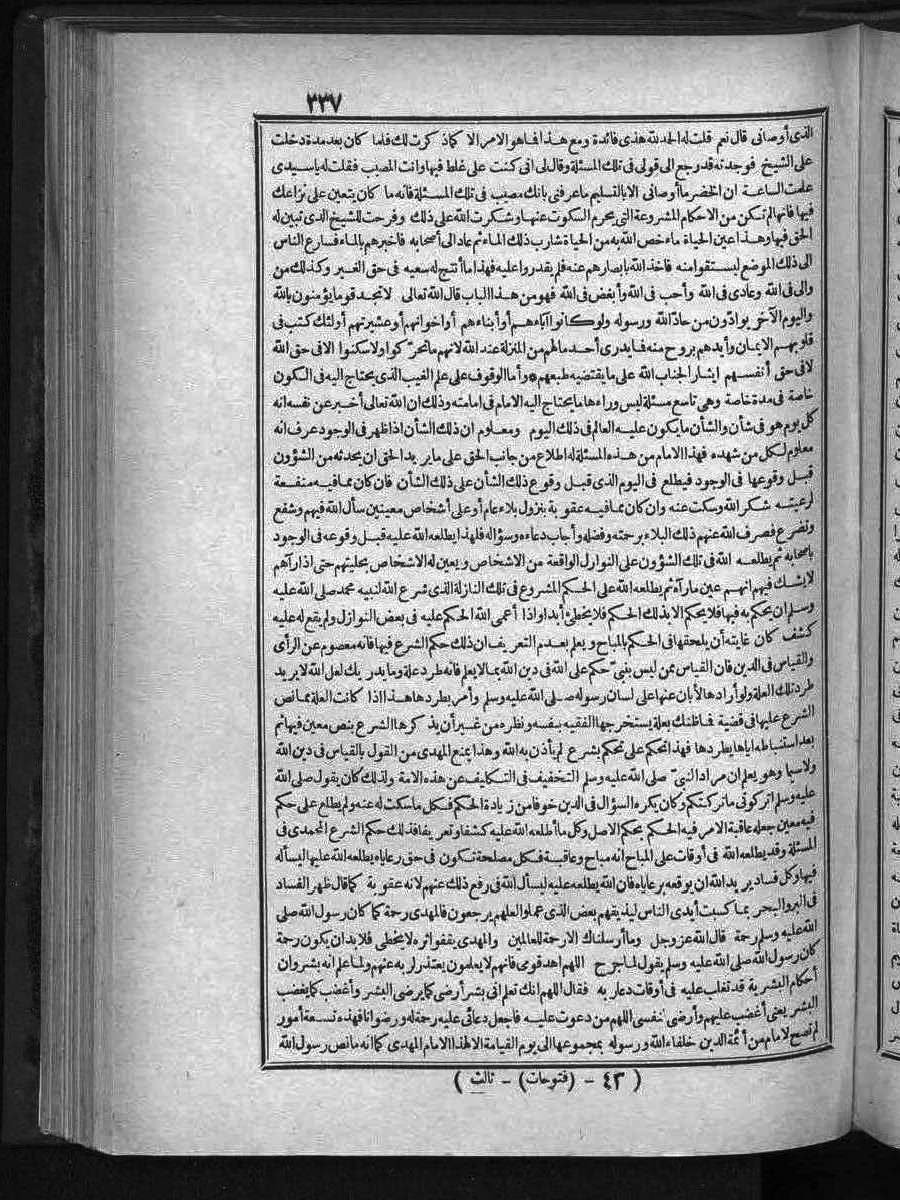 ٣٣٧
الذى أوصانى قال نعم قلت له الحمد لله هذى فائدة ومع هذا فما هو الامر الا كما ذكرت لك فلما كان بعد مدة دخلت
على الشيخ فوجدته قد رجع الى قولى فى تلك المسئلة وقال لى انى كنت على غلط فيها وانت المصيب فقلت له ياسيدى
علمت الساعة ان الخضر ما أوصانى الا بالتسليم ما عرفنى بانك مصيب فى تلك المسئلة فانه ما كان يتعين على نزاعك
فيها فانها لم تكن من الاحكام المشروعة التى يحرم السكوت عنها وشكرت الله على ذلك وفرحت للشيخ الذى تبين له
الحق فيها وهذا عين الحياة ماء خص الله به من الحياة شارب ذلك الماء ثم عاد الى أصحابه فاخبرهم بالماء فسارع الناس
الى ذلك الموضع ليستقوا منه فاخذ الله بابصارهم عنه فلم يقدروا عليه فهذا ما أنتج له سعيه فى حق الغير وكذلك من
والى فى الله وعادى فى الله وأحب فى الله وأبغض فى الله فهو من هذا الباب قال الله تعالى لا تجد قوما يؤمنون بالله
واليوم الآخر يوادّون من حادّ الله ورسوله ولو كانوا آباءهم أو أبناءهم أو اخوانهم أو عشيرتهم أولئك كتب فى
قلوبهم الايمان وأيدهم بروح منه فما يدرى أحد ما لهم من المنزلة عند الله لانهم ما تحرّكوا ولا سكنوا الا فى حق الله
لا فى حق أنفسهم ايثار الجناب الله على ما يقتضيه طبعهم * وأما الوقوف على علم الغيب الذى يحتاج اليه فى الكون
خاصة فى مدة خاصة وهى تاسع مسئلة ليس وراءها ما يحتاج اليه الامام فى امامته وذلك ان الله تعالى أخبر عن نفسه انه
كل يوم هو فى شأن والشأن ما يكون عليه العالم فى ذلك اليوم ومعلوم ان ذلك الشأن اذا ظهر فى الوجود عرف انه
معلوم لكل من شهده فهذا الامام من هذه المسئلة له اطلاع من جانب الحق على ما يريد الحق ان يحدثه من الشؤون
قبل وقوعها فى الوجود فيطلع فى اليوم الذى قبل وقوع ذلك الشأن على ذلك الشأن فان كان مما فيه منفعة
لرعيته شكر الله وسكت عنه وان كان مما فيه عقوبة بنزول بلاء عام أو على أشخاص معينين سأل الله فيهم وشفع
وتضرع فصرف الله عنهم ذلك البلاء برحمته وفضله وأجاب دعاءه وسؤاله فلهذا يطلعه الله عليه قبل وقوعه فى الوجود
باصحابه ثم يطلعه الله فى تلك الشؤون على النوازل الواقعة من الاشخاص ويعين له الاشخاص بحليتهم حتى اذا رآهم
لا يشك فيهم انهم عين ما رآه ثم يطلعه الله على الحكم المشروع فى تلك النازلة الذى شرع الله لنبيه محمد صلى الله عليه
وسلم ان يحكم به فيها فلا يحكم الا بذلك الحكم فلا يخطئ أبدا واذا أعمى الله الحكم عليه فى بعض النوازل ولم يقع له عليه
كشف كان غايته أن يلحقها فى الحكم بالمباح ويعلم بعدم التعريف ان ذلك حكم الشرع فيها فانه معصوم عن الرأى
والقياس فى الدين فان القياس ممن ليس بنبىّ حكم على الله فى دين الله بما لا يعلم فانه طرد علة وما يدريك لعل الله لا يريد
طرد تلك العلة ولو أرادها لأبان عنها على لسان رسوله صلى الله عليه وسلم وأمر بطردها هذا اذا كانت العلة مما نص
الشرع عليها فى قضية فما ظنك بعلة يستخرجها الفقيه بنفسه ونظره من غير أن يذكرها الشرع بنص معين فيها ثم
بعد استنباطه اياها يطردها فهذا تحكم على تحكم بشرع لم يأذن به الله وهذا يمنع المهدى من القول بالقياس فى دين الله
ولا سيما وهو يعلم ان مراد النبىّ صلى الله عليه وسلم التخفيف فى التكليف عن هذه الامة ولذلك كان يقول صلى الله
عليه وسلم اتركونى ما تركتكم وكان يكره السؤال فى الدين خوفا من زيادة الحكم فكل ما سكت له عنه ولم يطلع على حكم
فيه معين جعله عاقبة الامر فيه الحكم بحكم الاصل وكل ما أطلعه الله عليه كشفا وتعريفا فذلك حكم الشرع المحمدى فى
المسئلة وقد يطلعه الله فى أوقات على المباح انه مباح وعاقبة فكل مصلحة تكون فى حق رعاياه يطلعه الله عليها ليسأله
فيها وكل فساد يريد الله ان يوقعه برعاياه فان الله يطلعه عليه ليسأل الله فى رفع ذلك عنهم لانه عقوبة كما قال ظهر الفساد
فى البر والبحر بما كسبت أيدى الناس ليذيقهم بعض الذى عملوا لعلهم يرجعون فالمهدى رحمة كما كان رسول الله صلى
الله عليه وسلم رحمة قال الله عز وجل وما أرسلناك الا رحمة للعالمين والمهدى يقفو اثره لا يخطى فلا بد ان يكون رحمة
كان رسول الله صلى الله عليه وسلم يقول لما جرح اللهم اهد قومى فانهم لا يعلمون يعتذر لربه عنهم ولما علم انه بشر وان
أحكام البشرية قد تغلب عليه فى أوقات دعا ربه فقال اللهم انك تعلم انى بشر أرضى كما يرضى البشر وأغضب كما يغضب
البشر يعنى أغضب عليهم وأرضى لنفسى اللهم من دعوت عليه فاجعل دعائى عليه رحمة له ورضوانا فهذه تسعة أمور
لم تصح لامام من أئمة الدين خلفاء الله ورسوله بمجموعها الى يوم القيامة الا لهذا الامام المهدى كما انه ما نص رسول الله
( ٤٣ - (فتوحات) - ثالث )